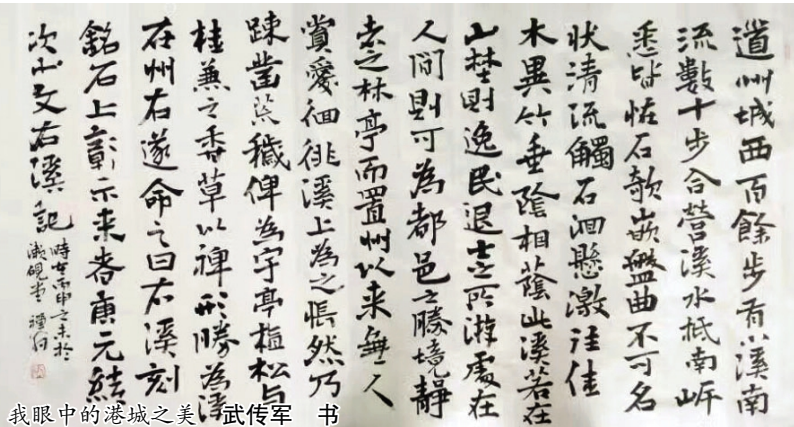 道州城西百餘步有小溪南
流數十步合營溪水抵南岸
悉皆怪石欹嵌盤曲不可名
狀清流觸石洄懸激注佳
木異竹垂陰相蔭此溪若在
山埜則逸民退士之所游處在
人間則可為都邑之勝境靜
者之林亭而置州以來無人
賞愛徊徘溪上為之悵然乃
踈鑿蕪穢俾為宇亭植松与
桂兼之香草以裨形勝為溪
在州右遂命之曰右溪刻
銘石上彰示来者唐元結
次山文右溪記
時在丙申之末於
硯堂
我眼中的港城之美 武传军 书